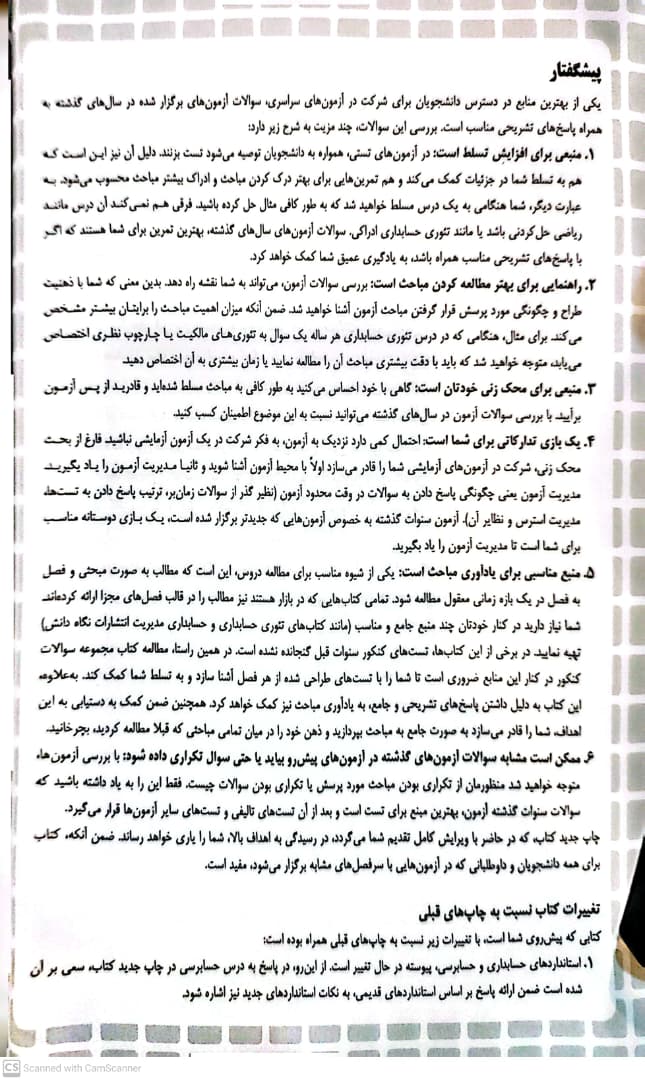 پیشگفتار
یکی از بهترین منابع در دسترس دانشجویان برای شرکت در آزمون‌های سراسری، سوالات آزمون‌های برگزار شده در سال‌های گذشته به
همراه پاسخ‌های تشریحی مناسب است. بررسی این سوالات، چند مزیت به شرح زیر دارد:
۱. منبعی برای افزایش تسلط است: در آزمون‌های تستی، همواره به دانشجویان توصیه می‌شود تست بزنند. دلیل آن نیز این است که
هم به تسلط شما در جزئیات کمک می‌کند و هم تمرین‌هایی برای بهتر درک کردن مباحث و ادراک بیشتر مباحث محسوب می‌شود. به
عبارت دیگر، شما هنگامی به یک درس مسلط خواهید شد که به طور کافی مثال حل کرده باشید. فرقی هم نمی‌کند آن درس مانند
ریاضی حل‌کردنی باشد یا مانند تئوری حسابداری ادراکی. سوالات آزمون‌های سال‌های گذشته، بهترین تمرین برای شما هستند که اگر
با پاسخ‌های تشریحی مناسب همراه باشد، به یادگیری عمیق شما کمک خواهد کرد.
۲. راهنمایی برای بهتر مطالعه کردن مباحث است: بررسی سوالات آزمون، می‌تواند به شما نقشه راه دهد. بدین معنی که شما با ذهنیت
طراح و چگونگی مورد پرسش قرار گرفتن مباحث آزمون آشنا خواهید شد. ضمن آنکه میزان اهمیت مباحث را برایتان بیشتر مشخص
می‌کند. برای مثال، هنگامی که در درس تئوری حسابداری هر ساله یک سوال به تئوری‌های مالکیت یا چارچوب نظری اختصاص
می‌یابد، متوجه خواهید شد که باید با دقت بیشتری مباحث آن را مطالعه نمایید یا زمان بیشتری به آن اختصاص دهید.
۳. منبعی برای محک زنی خودتان است: گاهی با خود احساس می‌کنید به طور کافی به مباحث مسلط شده‌اید و قادرید از پس آزمون
برآیید. با بررسی سوالات آزمون در سال‌های گذشته می‌توانید نسبت به این موضوع اطمینان کسب کنید.
۴. یک بازی تدارکاتی برای شما است: احتمال کمی دارد نزدیک به آزمون، به فکر شرکت در یک آزمون آزمایشی نباشید. فارغ از بحث
محک زنی، شرکت در آزمون‌های آزمایشی شما را قادر می‌سازد اولاً با محیط آزمون آشنا شوید و ثانیا مدیریت آزمون را یاد بگیرید.
مدیریت آزمون یعنی چگونگی پاسخ دادن به سوالات در وقت محدود آزمون (نظیر گذر از سوالات زمان‌بر، ترتیب پاسخ دادن به تست‌ها،
مدیریت استرس و نظایر آن). آزمون سنوات گذشته به خصوص آزمون‌هایی که جدیدتر برگزار شده است، یک بازی دوستانه مناسب
برای شما است تا مدیریت آزمون را یاد بگیرید.
۵. منبع مناسبی برای یادآوری مباحث است: یکی از شیوه مناسب برای مطالعه دروس، این است که مطالب به صورت مبحثی و فصل
به فصل در یک بازه زمانی معقول مطالعه شود. تمامی کتاب‌هایی که در بازار هستند نیز مطالب را در قالب فصل‌های مجزا ارائه کرده‌اند.
شما نیاز دارید در کنار خودتان چند منبع جامع و مناسب (مانند کتاب‌های تئوری حسابداری و حسابداری مدیریت انتشارات نگاه دانش)
تهیه نمایید. در برخی از این کتاب‌ها، تست‌های کنکور سنوات قبل گنجانده نشده است. در همین راستا، مطالعه کتاب مجموعه سوالات
کنکور در کنار این منابع ضروری است تا شما را با تست‌های طراحی شده از هر فصل آشنا سازد و به تسلط شما کمک کند. به‌علاوه،
این کتاب به دلیل داشتن پاسخ‌های تشریحی و جامع، به یادآوری مباحث نیز کمک خواهد کرد. همچنین ضمن کمک به دستیابی به این
اهداف، شما را قادر می‌سازد به صورت جامع به مباحث بپردازید و ذهن خود را در میان تمامی مباحثی که قبلا مطالعه کردید، بچرخانید.
۶. ممکن است مشابه سوالات آزمون‌های گذشته در آزمون‌های پیش‌رو بیاید یا حتی سوال تکراری داده شود: با بررسی آزمون‌ها،
متوجه خواهید شد منظورمان از تکراری بودن مباحث مورد پرسش یا تکراری بودن سوالات چیست. فقط این را به یاد داشته باشید که
سوالات سنوات گذشته آزمون، بهترین مبنع برای تست است و بعد از آن تست‌های تالیفی و تست‌های سایر آزمون‌ها قرار می‌گیرد.
چاپ جدید کتاب، که در حاضر با ویرایش کامل تقدیم شما می‌گردد، در رسیدگی به اهداف بالا، شما را یاری خواهد رساند. ضمن آنکه، کتاب
برای همه دانشجویان و داوطلبانی که در آزمون‌هایی با سرفصل‌های مشابه برگزار می‌شود، مفید است.
تغییرات کتاب نسبت به چاپ‌های قبلی
کتابی که پیش‌روی شما است، با تغییرات زیر نسبت به چاپ‌های قبلی همراه بوده است:
۱. استانداردهای حسابداری و حسابرسی، پیوسته در حال تغییر است. از این‌رو، در پاسخ به درس حسابرسی در چاپ جدید کتاب، سعی بر آن
شده است ضمن ارائه پاسخ بر اساس استانداردهای قدیمی، به نکات استانداردهای جدید نیز اشاره شود.
CS Scanned with CamScanner